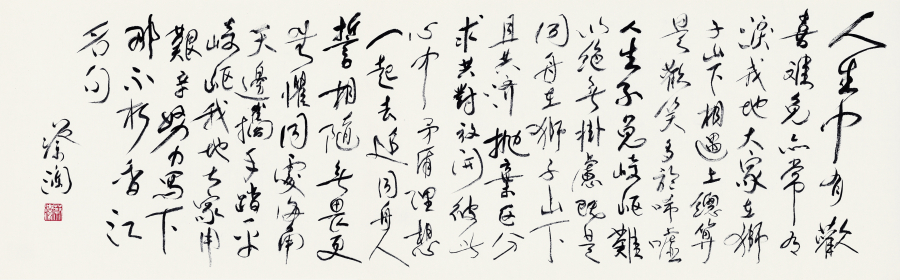 人生中有歡
喜難免亦常有
淚我地大家在獅
子山下相遇上總算
是歡笑多於唏噓
人生不免崎嶇難
以絕無掛慮既是
同舟在獅子山下
且共濟拋棄區分
求共對放開彼此
心中矛盾理想
一起去追同舟人
誓相隨無畏更
無懼同處海角
天邊攜手踏平
崎嶇我地大家用
艱辛努力寫下
那不朽香江
名句
蔡瀾